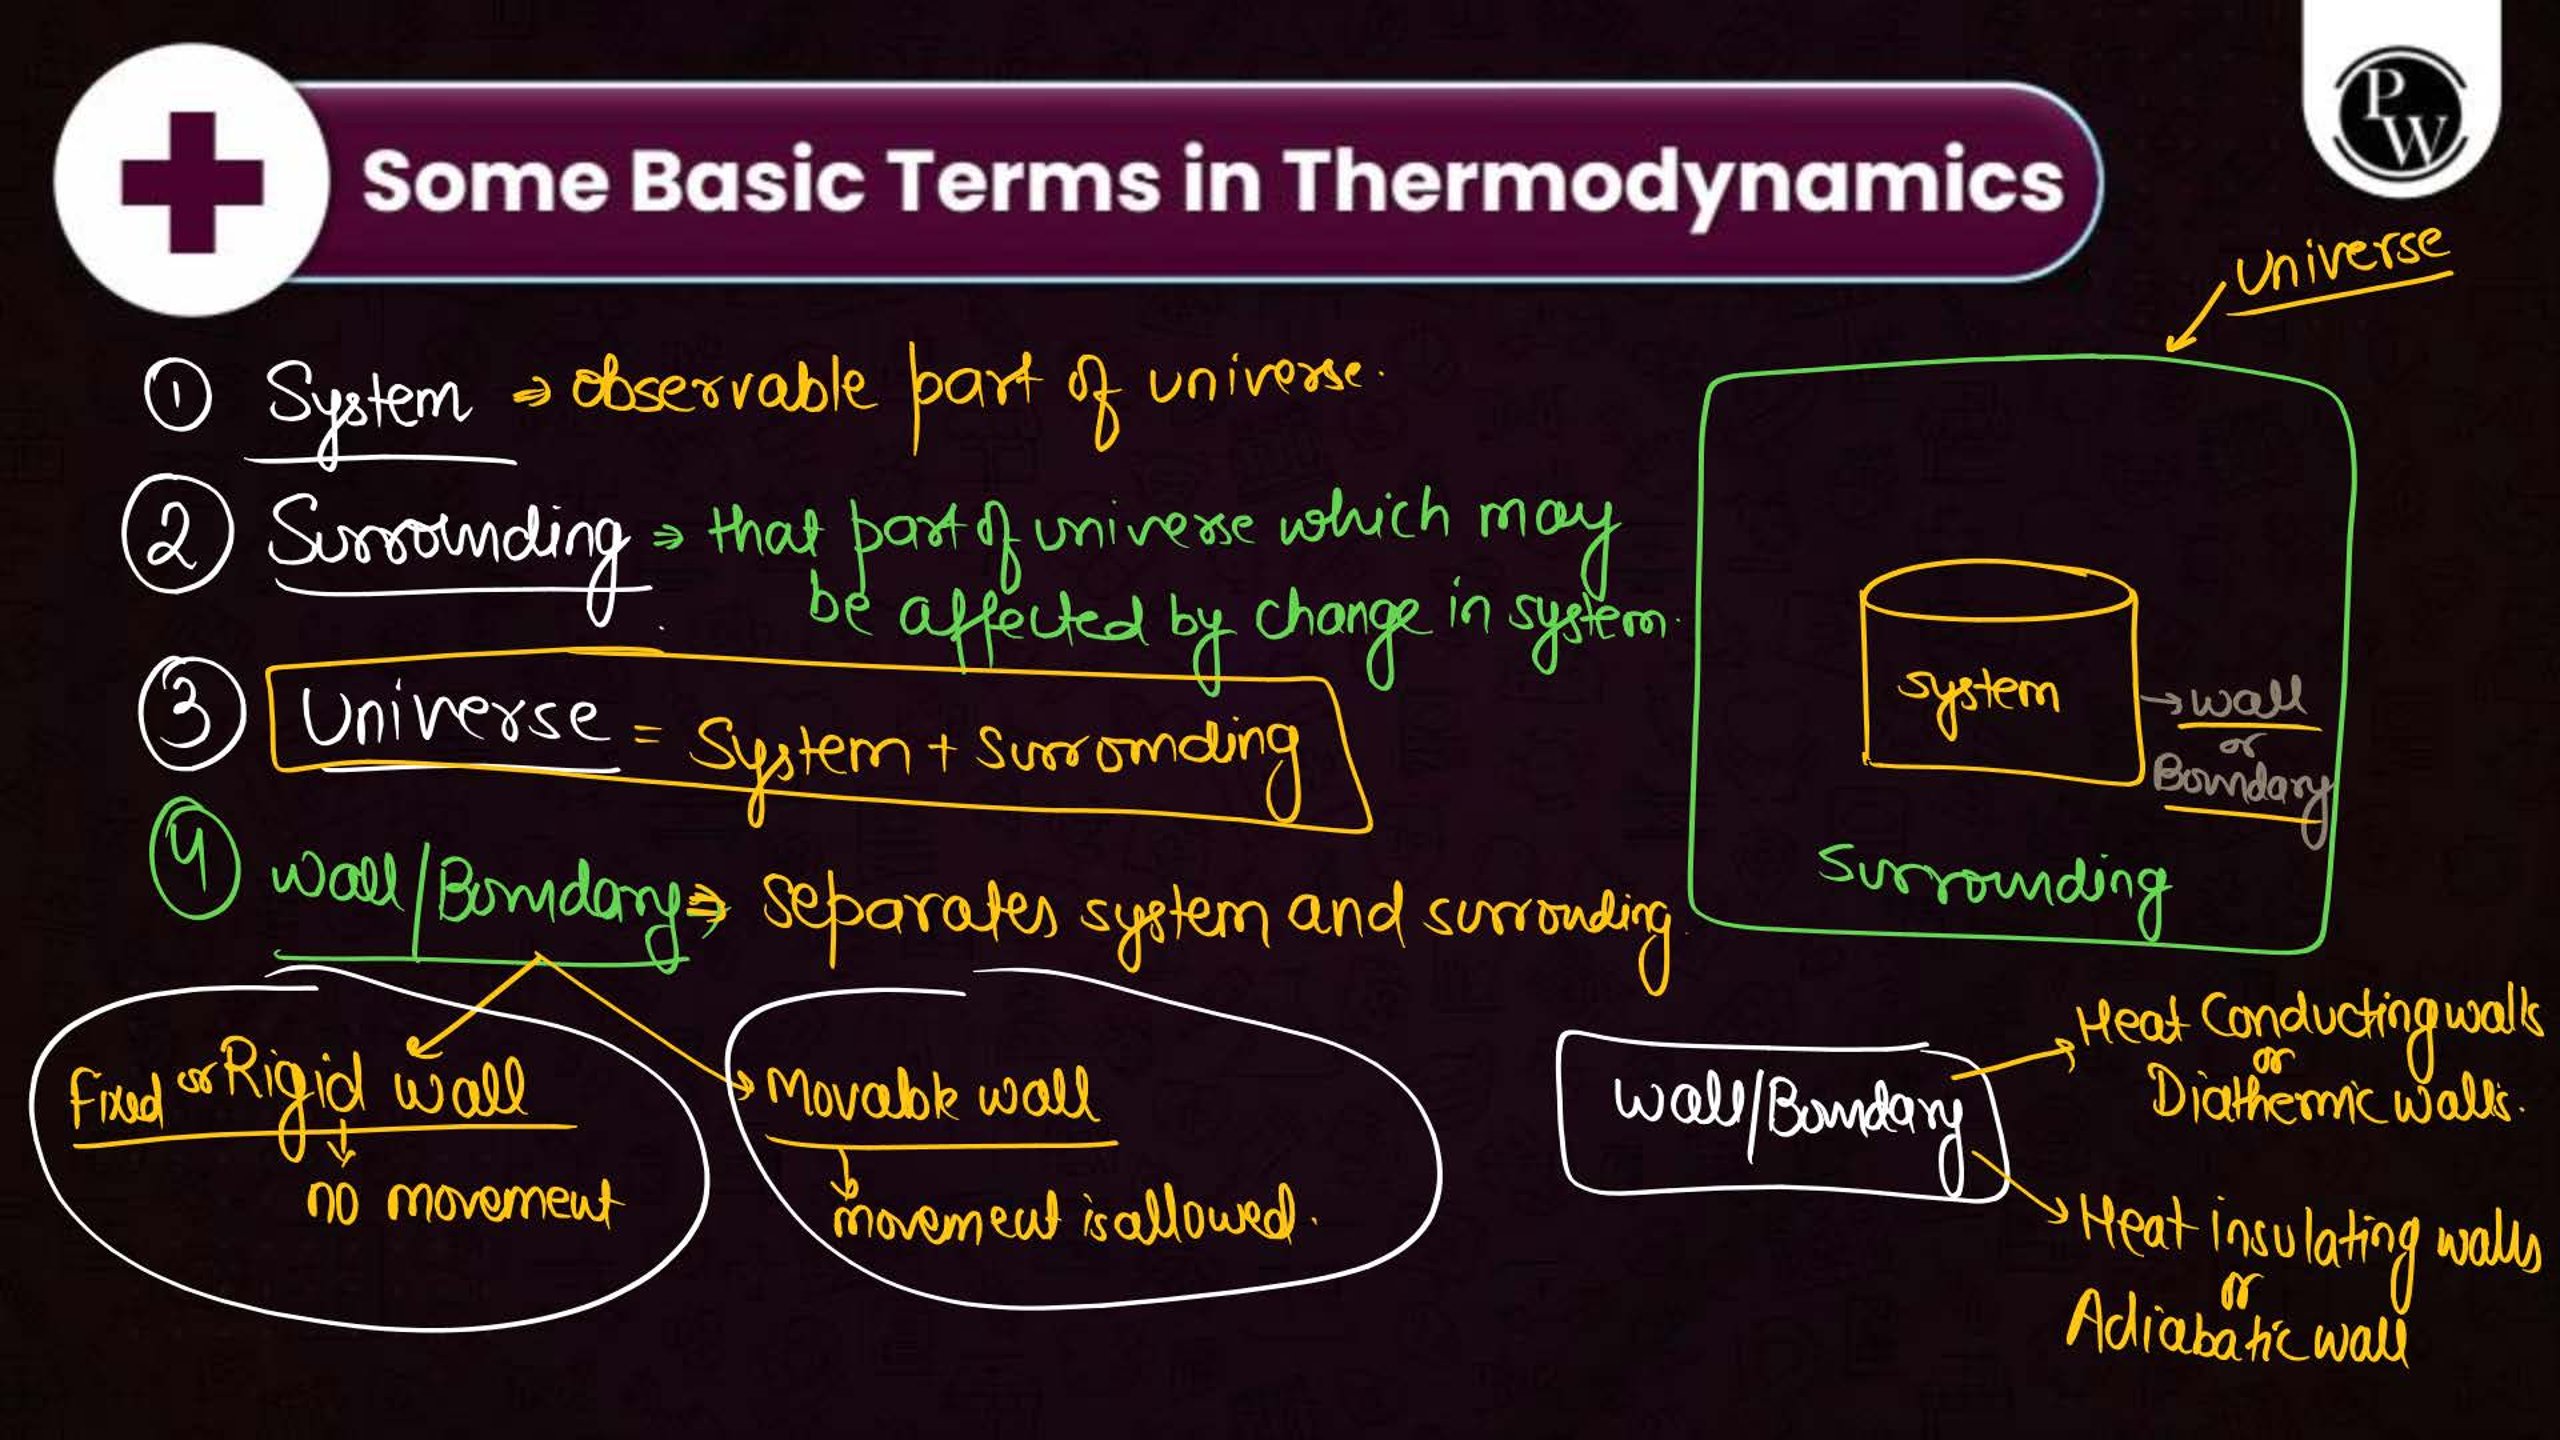 Some Basic Terms in Thermodynamics
PW
Universe
① System ⇒ observable part of universe.
② Surrounding ⇒ that part of universe which may
be affected by change in system.
③ Universe = System + Surrounding
system
→ wall
or
Boundary
Surrounding
④ wall/Boundary ⇒ separates system and surrouding
Fixed or Rigid wall
no movement
Movable wall
movement is allowed.
wall/Boundary
Heat Conducting walls
or
Diathermic walls.
Heat insulating walls
or
Adiabatic wall